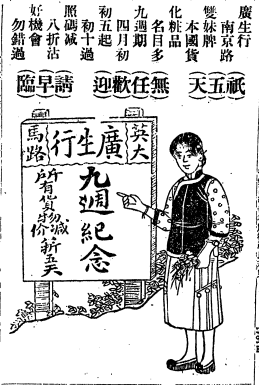 廣生行
南京路
雙妹牌
本國貨
化粧品
名目多
九週期
四月初
初五起
初十過
照碼減
八折沽
好機會
勿錯過
祇五天
無任歡迎
請早臨
英大馬路
廣生行
九週紀念
所有貨物減价五天